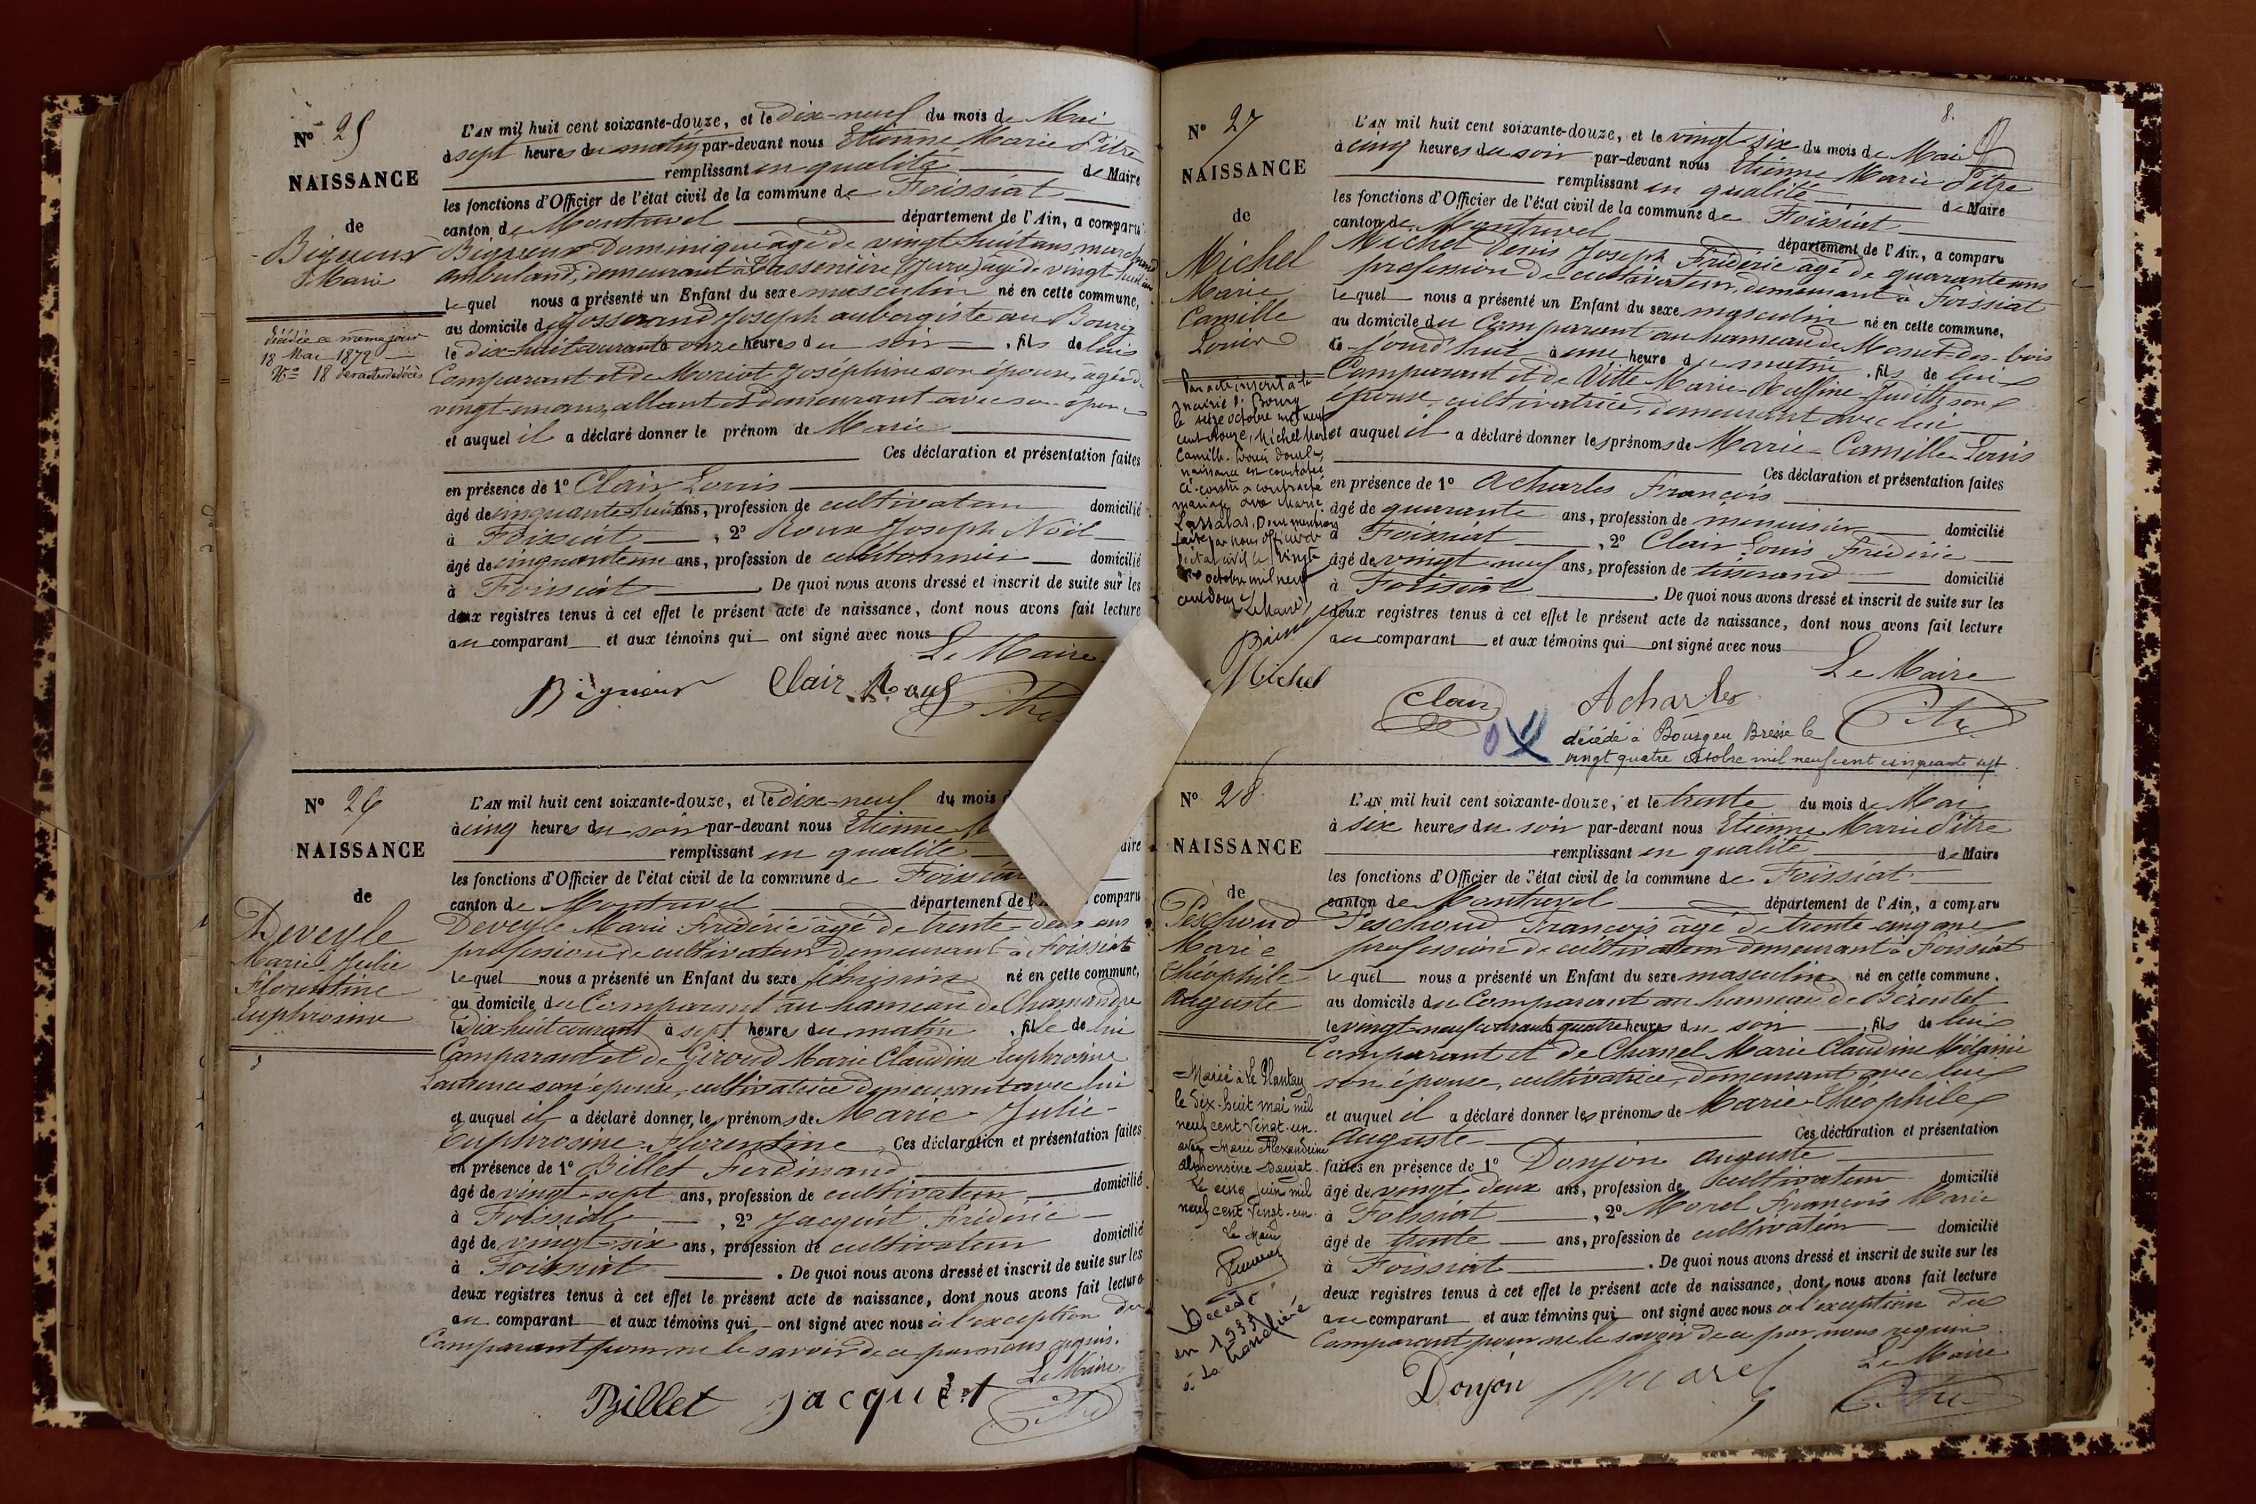 Nº 25
NAISSANCE
de
Bigueur
Marie
Décédée le même jour
18 Mai 1872
Nº 18 des actes de décès
L'AN mil huit cent soixante-douze, et le dix-neuf du mois de Mai
à sept heures du matin par-devant nous Etienne Marie Pitre
remplissant en qualité de Maire
les fonctions d'Officier de l'état civil de la commune de Foissiat
canton de Montrevel département de l'Ain, a comparu
Bigueur Dominique âgé de vingt-huit ans, marchand
ambulant, demeurant à (Jura) âgé de vingt-huit ans
lequel nous a présenté un Enfant du sexe masculin né en cette commune,
au domicile de Josserand Joseph aubergiste au Bourg
le dix-huit courant à onze heures du soir, fils de lui
Comparant et de Joséphine son épouse, âgée de
vingt-un ans, allant et demeurant avec son époux
et auquel il a déclaré donner le prénom de Marie
Ces déclaration et présentation faites
en présence de 1º Clair Louis
âgé de cinquante-huit ans, profession de cultivateur domicilié
à Foissiat, 2º Roux Joseph Noël
âgé de cinquante un ans, profession de cantonnier domicilié
à Foissiat. De quoi nous avons dressé et inscrit de suite sur les
deux registres tenus à cet effet le présent acte de naissance, dont nous avons fait lecture
au comparant et aux témoins qui ont signé avec nous
Le Maire
Bigueur Clair Roux Pitre
Nº 26
NAISSANCE
de
Deveyle
Marie Julie
Florentine
Euphrosine
L'AN mil huit cent soixante-douze, et le dix-neuf du mois
à cinq heures du soir par-devant nous Etienne
remplissant en qualité
les fonctions d'Officier de l'état civil de la commune de Foissiat
canton de Montrevel département de l' comparu
Deveyle Marie Frédéric âgé de trente-deux ans
profession de cultivateur demeurant à Foissiat
lequel nous a présenté un Enfant du sexe féminin né en cette commune,
au domicile du Comparant au hameau de Chamandre
le dix-huit courant à sept heures du matin, fille de lui
Comparant et de Giroud Marie Claudine Euphrosine
Laurence son épouse, cultivatrice demeurant avec lui
et auquel il a déclaré donner les prénoms de Marie-Julie-
Euphrosine-Florentine Ces déclaration et présentation faites
en présence de 1º Billet Ferdinand
âgé de vingt-sept ans, profession de cultivateur domicilié
à Foissiat, 2º Jacquet Frédéric
âgé de vingt-six ans, profession de cultivateur domicilié
à Foissiat. De quoi nous avons dressé et inscrit de suite sur les
deux registres tenus à cet effet le présent acte de naissance, dont nous avons fait lecture
au comparant et aux témoins qui ont signé avec nous à l'exception du
Comparant pour ne le savoir de ce par nous requis.
Le Maire
Billet Jacquet Pitre
8.
Nº 27
NAISSANCE
de
Michel
Marie
Camille
Louis
Par acte inscrit à la
mairie de Bourg
le seize octobre mil neuf
cent douze, Michel Marie
Camille-Louis dont la
naissance est constatée
ci-contre a contracté
mariage avec Marie
Lassalas. Dont mention
faite par nous officier de
l'état civil le vingt
octobre mil neuf
cent douze
Le Maire
L'AN mil huit cent soixante-douze, et le vingt-six du mois de Mai
à cinq heures du soir par-devant nous Etienne Marie Pitre
remplissant en qualité de Maire
les fonctions d'Officier de l'état civil de la commune de Foissiat
canton de Montrevel département de l'Ain, a comparu
Michel Denis Joseph Frédéric âgé de quarante ans
profession de cultivateur, demeurant à Foissiat
lequel nous a présenté un Enfant du sexe masculin né en cette commune,
au domicile du Comparant au hameau de Monet-des-bois
ce-jourd'hui à une heure du matin, fils de lui
Comparant et de Vitte Marie Ruffine Judith son
épouse, cultivatrice, demeurant avec lui
et auquel il a déclaré donner les prénoms de Marie-Camille-Louis
Ces déclaration et présentation faites
en présence de 1º Acharles François
âgé de quarante ans, profession de menuisier domicilié
à Foissiat, 2º Clair Louis Frédéric
âgé de vingt-neuf ans, profession de tisserand domicilié
à Foissiat. De quoi nous avons dressé et inscrit de suite sur les
deux registres tenus à cet effet le présent acte de naissance, dont nous avons fait lecture
au comparant et aux témoins qui ont signé avec nous
Le Maire
Michel Clair Acharles Pitre
décédé à Bourg en Bresse le
vingt quatre octobre mil neuf cent cinquante sept
Nº 28
NAISSANCE
de
Peschoud
Marie
Théophile
Auguste
Marié à Le Plantay
le dix-huit mai mil
neuf cent vingt-un
avec Marie Alexandrine
Alphonsine Daujat.
Le cinq juin mil
neuf cent vingt-un.
Le Maire
Décédé
en 1935
à La Tranclière
L'AN mil huit cent soixante-douze, et le trente du mois de Mai
à six heures du soir par-devant nous Etienne Marie Pitre
remplissant en qualité de Maire
les fonctions d'Officier de l'état civil de la commune de Foissiat
canton de Montrevel département de l'Ain, a comparu
Peschoud François âgé de trente-cinq ans
profession de cultivateur demeurant à Foissiat
lequel nous a présenté un Enfant du sexe masculin né en cette commune.
au domicile du Comparant au hameau de Bérentet
le vingt-neuf courant à quatre heures du soir, fils de lui
Comparant et de Chanel Marie Claudine Mélanie
son épouse, cultivatrice, demeurant avec lui
et auquel il a déclaré donner les prénoms de Marie-Théophile
Auguste Ces déclaration et présentation
faites en présence de 1º Donjon Auguste
âgé de vingt-deux ans, profession de cultivateur domicilié
à Foissiat, 2º Morel François Marie
âgé de trente ans, profession de cultivateur domicilié
à Foissiat. De quoi nous avons dressé et inscrit de suite sur les
deux registres tenus à cet effet le présent acte de naissance, dont nous avons fait lecture
au comparant et aux témoins qui ont signé avec nous à l'exception du
Comparant pour ne le savoir de ce par nous requis
Le Maire
Donjon Morel Pitre